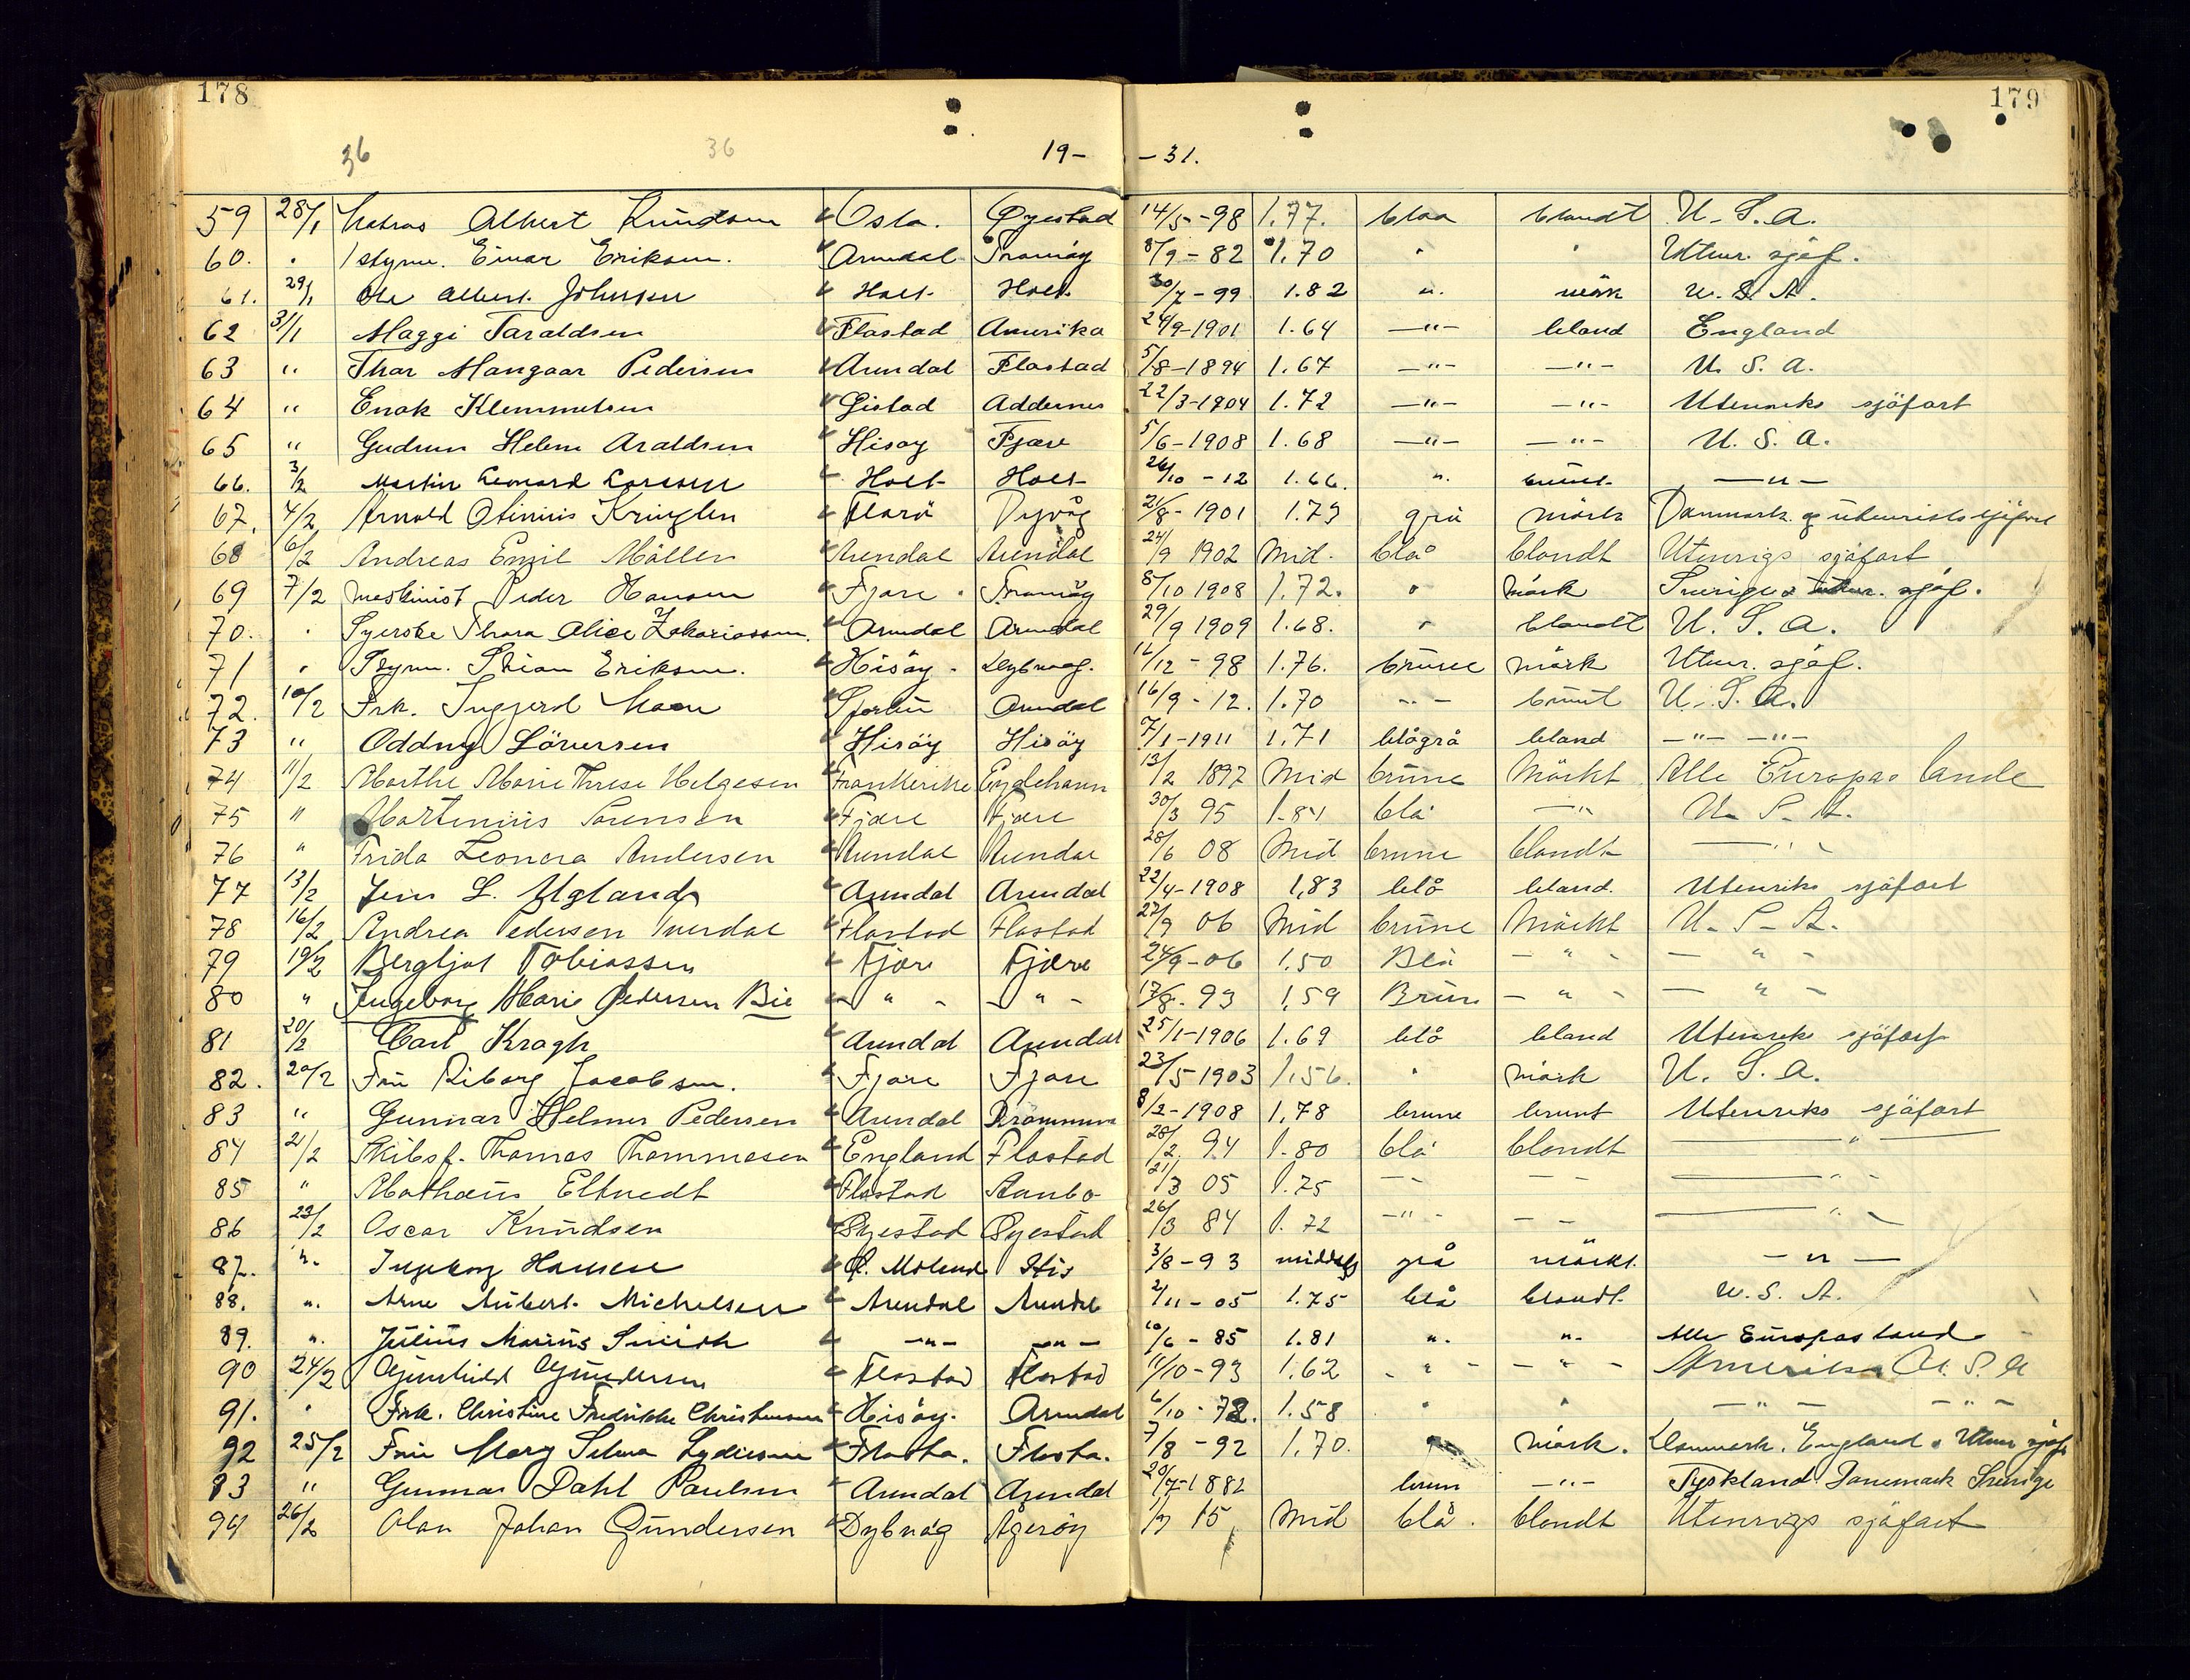 178 179
36 36 19- -31.
59 28/1 Matros Albert Knudsen Oslo. Øyestad 14/5-98 1.77. blaa blandt U.S.A.
60. " 1 styrm. Einar Eriksen. Arendal Tromøy 8/9-82 1.70 " " Utenr. sjøf.
61. 29/1 Ole Albert Johnsen Holt Holt 30/7-99 1.82 " mörk U.S.A.
62 31/1 Maggi Taraldsen Flastad Amerika 24/9-1901 1.64 -"- bland England
63 " Thor Mangaar Pedersen Arendal Flastad 5/8-1894 1.67 -"- -"- U.S.A.
64 " Enok Klemmetsen Gistad Addernes 22/3-1904 1.72 -"- -"- Utenriks sjöfart
65 " Gudrun Helene Araldsen Hisøy Fjære 5/6-1908 1.68 -"- -"- U.S.A.
66. 3/2 Martin Leonard Larssen Holt Holt 26/10-12 1.66. " brunt -"-
67. 4/2 Arnold Otinius Kringlen Flarö Dyvåg 21/8-1901 1.73 grå mörk Danmark og utenriks sjöfart
68 6/2 Andreas Emil Möller Arendal Arendal 24/9 1902 Mid. blå blondt Utenrigs sjøfart
69 7/2 Maskinist Peder Hansen Fjære Tromøy 8/10 1908 1.72. " mörk Sverige & utenr. sjøf.
70. " Syerske Thora Alice Zakariassen. Arendal Arendal 29/9 1909 1.68. " blandt U.S.A.
71 " Styrm. Stian Eriksen. Hisöy Dybvaag. 16/12-98 1.76. brune mörk Utenr. sjøf.
72. 10/2 Frk. Ingjerd Moen Arendal 16/9-12. 1.70 -"- brunt U.S.A.
73 " Oddny Löversen Hisöy Hisöy 7/1-1911 1.71 blågrå bland -"- -"-
74 11/2 Marthe Marie Therese Helgesen Frankerike Eydehavn 13/2 1897 Mid brune Mörkt Alle Europas lande
75 " Martinius Sörensen Fjære Fjære 30/3 95 1.81 blå -"- U.S.A.
76 " Frida Leonora Andersen Arendal Arendal 28/6 08 Mid brune blondt -"-
77 13/2 Jens L. Ugland Arendal Arendal 22/4-1908 1,83 blå bland. Utenriks sjöfart
78 16/2 Andrea Pedersen Flastad Flastad 27/9 06 Mid brune Mörkt U.S.A.
79 19/2 Bergljot Tobiassen Fjære Fjære 24/9-06 1.50 Blå -"- -"-
80 " Ingeborg Marie Pedersen Bie -"- -"- 17/8-93 1,59 Brun -"- -"-
81 20/2 Carl Kragh Arendal Arendal 25/1-1906 1.69 blå bland Utenriks sjöfart
82. 20/2 Fru Riborg Jacobsen. Fjære Fjære 23/5-1903 1.56. " mörk U.S.A.
83 " Gunnar Helmer Pedersen Arendal Drammen 8/2-1908 1,78 brune brunt Utenriks sjöfart
84 21/2 Skibsf. Thomas Thommesen England Flastad 28/2 94 1.80 blå blondt -"-
85 " Mathæus Eltvedt Flastad 21/3 05 1.75 -"- -"- -"-
86 23/2 Oscar Knudsen Øyestad Øyestad 26/3 84 1.72 -"- -"- -"-
87. " Ingeborg Hansen Ø. Moland His 3/8-93 middels grå mörkt. -"-
88. " Arne Aubert Michelsen Arendal Arendal 2/11-05 1.75 blå blondt. U.S.A.
89. " Julius Marius Smith -"- -"- 10/6-85 1.81 " " Alle Europas land
90 24/2 Gunhild Gundersen Flastad Flastad 11/10-93 1.62 -"- -"- Amerika U.S.A
91. " Frk. Christine Fredrikke Christensen Hisöy. Arendal 6/10-72. 1.58 " " -"- -"-
92 25/2 Fru Mary Selma Lydersen Flosta. Flosta. 7/8-92 1.70. " mörk. Danmark. England & Utenr sjøf
93 " Gunnar Dahl Paulsen Arendal Arendal 20/7-1882 brun -"- Tyskland Danemark Sverige
94 26/2 Olav Johan Gundersen Dybvåg Ågeröy 1/7 15 Mid blå. blondt Utenrigs sjøfart